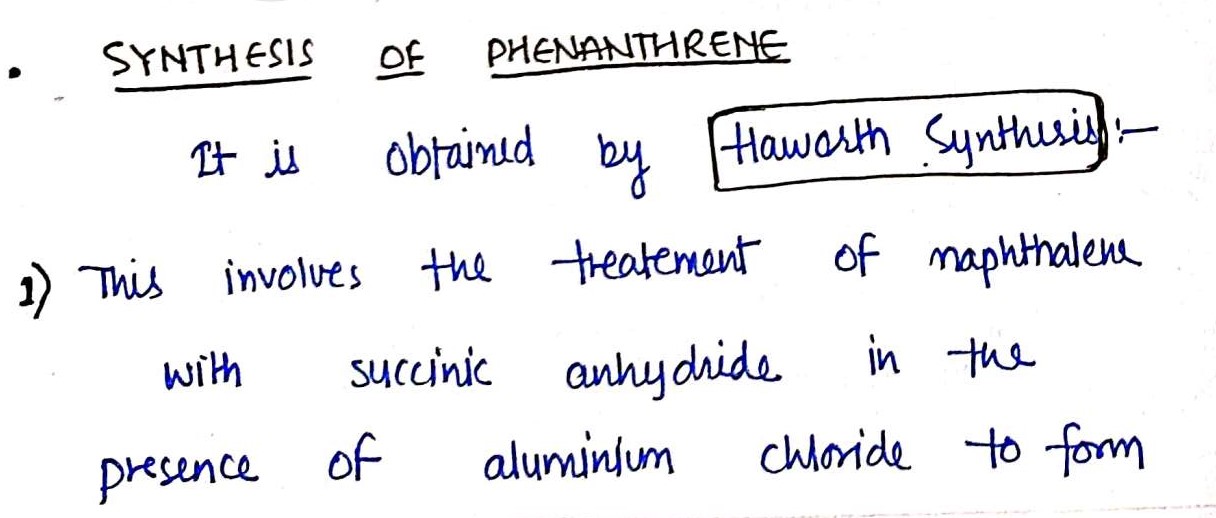 • SYNTHESIS OF PHENANTHRENE
It is obtained by Haworth Synthesis :-
1) This involves the treatement of naphthalene
with succinic anhydride in the
presence of aluminium chloride to form